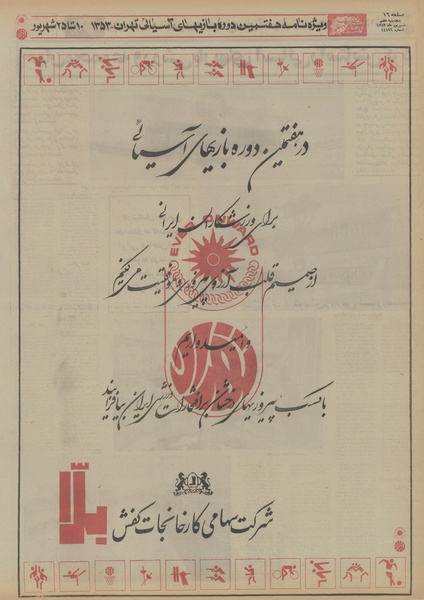 صفحه ۲۶
ویژه‌نامه هفتمین دوره بازیهای آسیائی تهران ۱۳۵۳- ۱۰ تا ۲۵ شهریور
در هفتمین دوره بازیهای آسیائی
برای ورزشکاران ایرانی
EVER ONWARD
از صمیم قلب آرزوی پیروزی و موفقیت می کنیم
و امیدواریم
با کسب پیروزیهای درخشان بر افتخارات ورزشی ایران بیافزایند
شرکت سهامی کارخانجات کفش
بلّا